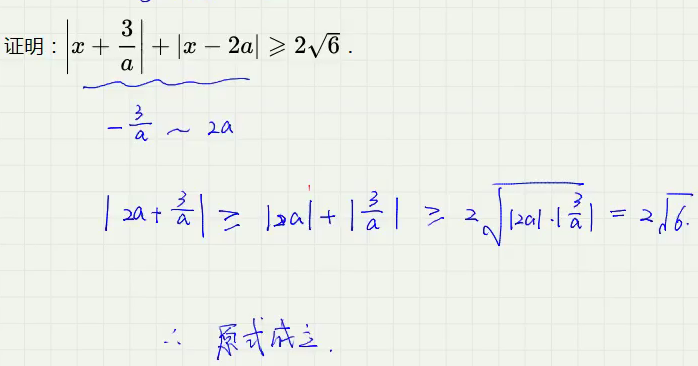 证明：|x + 3/a| + |x − 2a| ⩾ 2√6 .
−3/a ~ 2a
|2a + 3/a| ≥ |2a| + |3/a| ≥ 2√(|2a|·|3/a|) = 2√6.
∴ 原式成立.